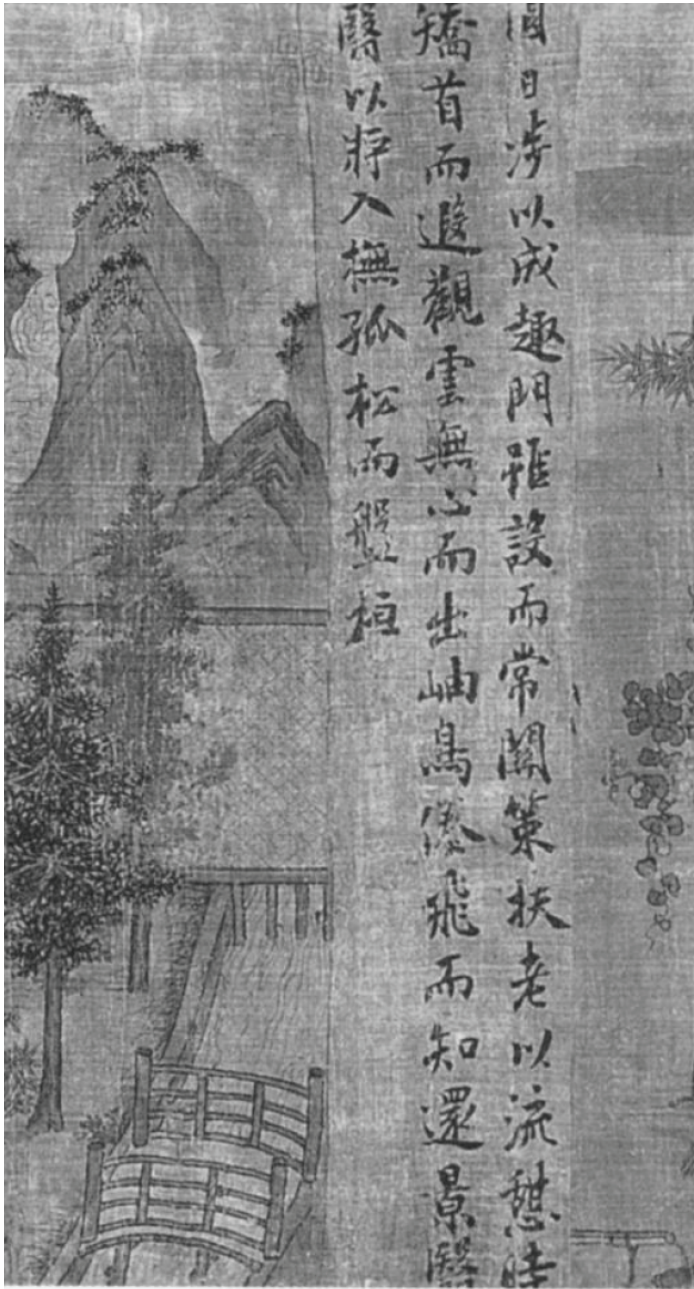 園日涉以成趣門雖設而常關策扶老以流憇時
矯首而遐觀雲無心而出岫鳥倦飛而知還景翳
翳以將入撫孤松而盤桓